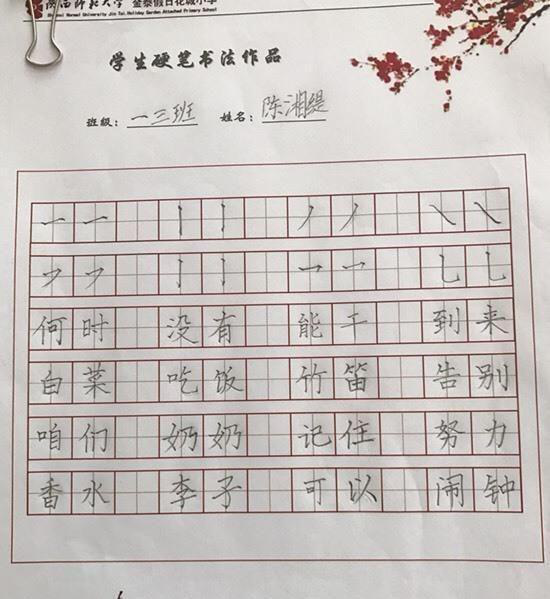 陕西师范大学 金泰假日花城小学
Shaanxi Normal University Jin Tai Holiday Garden Attached Primary School
学生硬笔书法作品
班级：一三班 姓名：陈湘缇
何时 没有 能干 到来
白菜 吃饭 竹笛 告别
咱们 奶奶 记住 努力
香水 李子 可以 闹钟